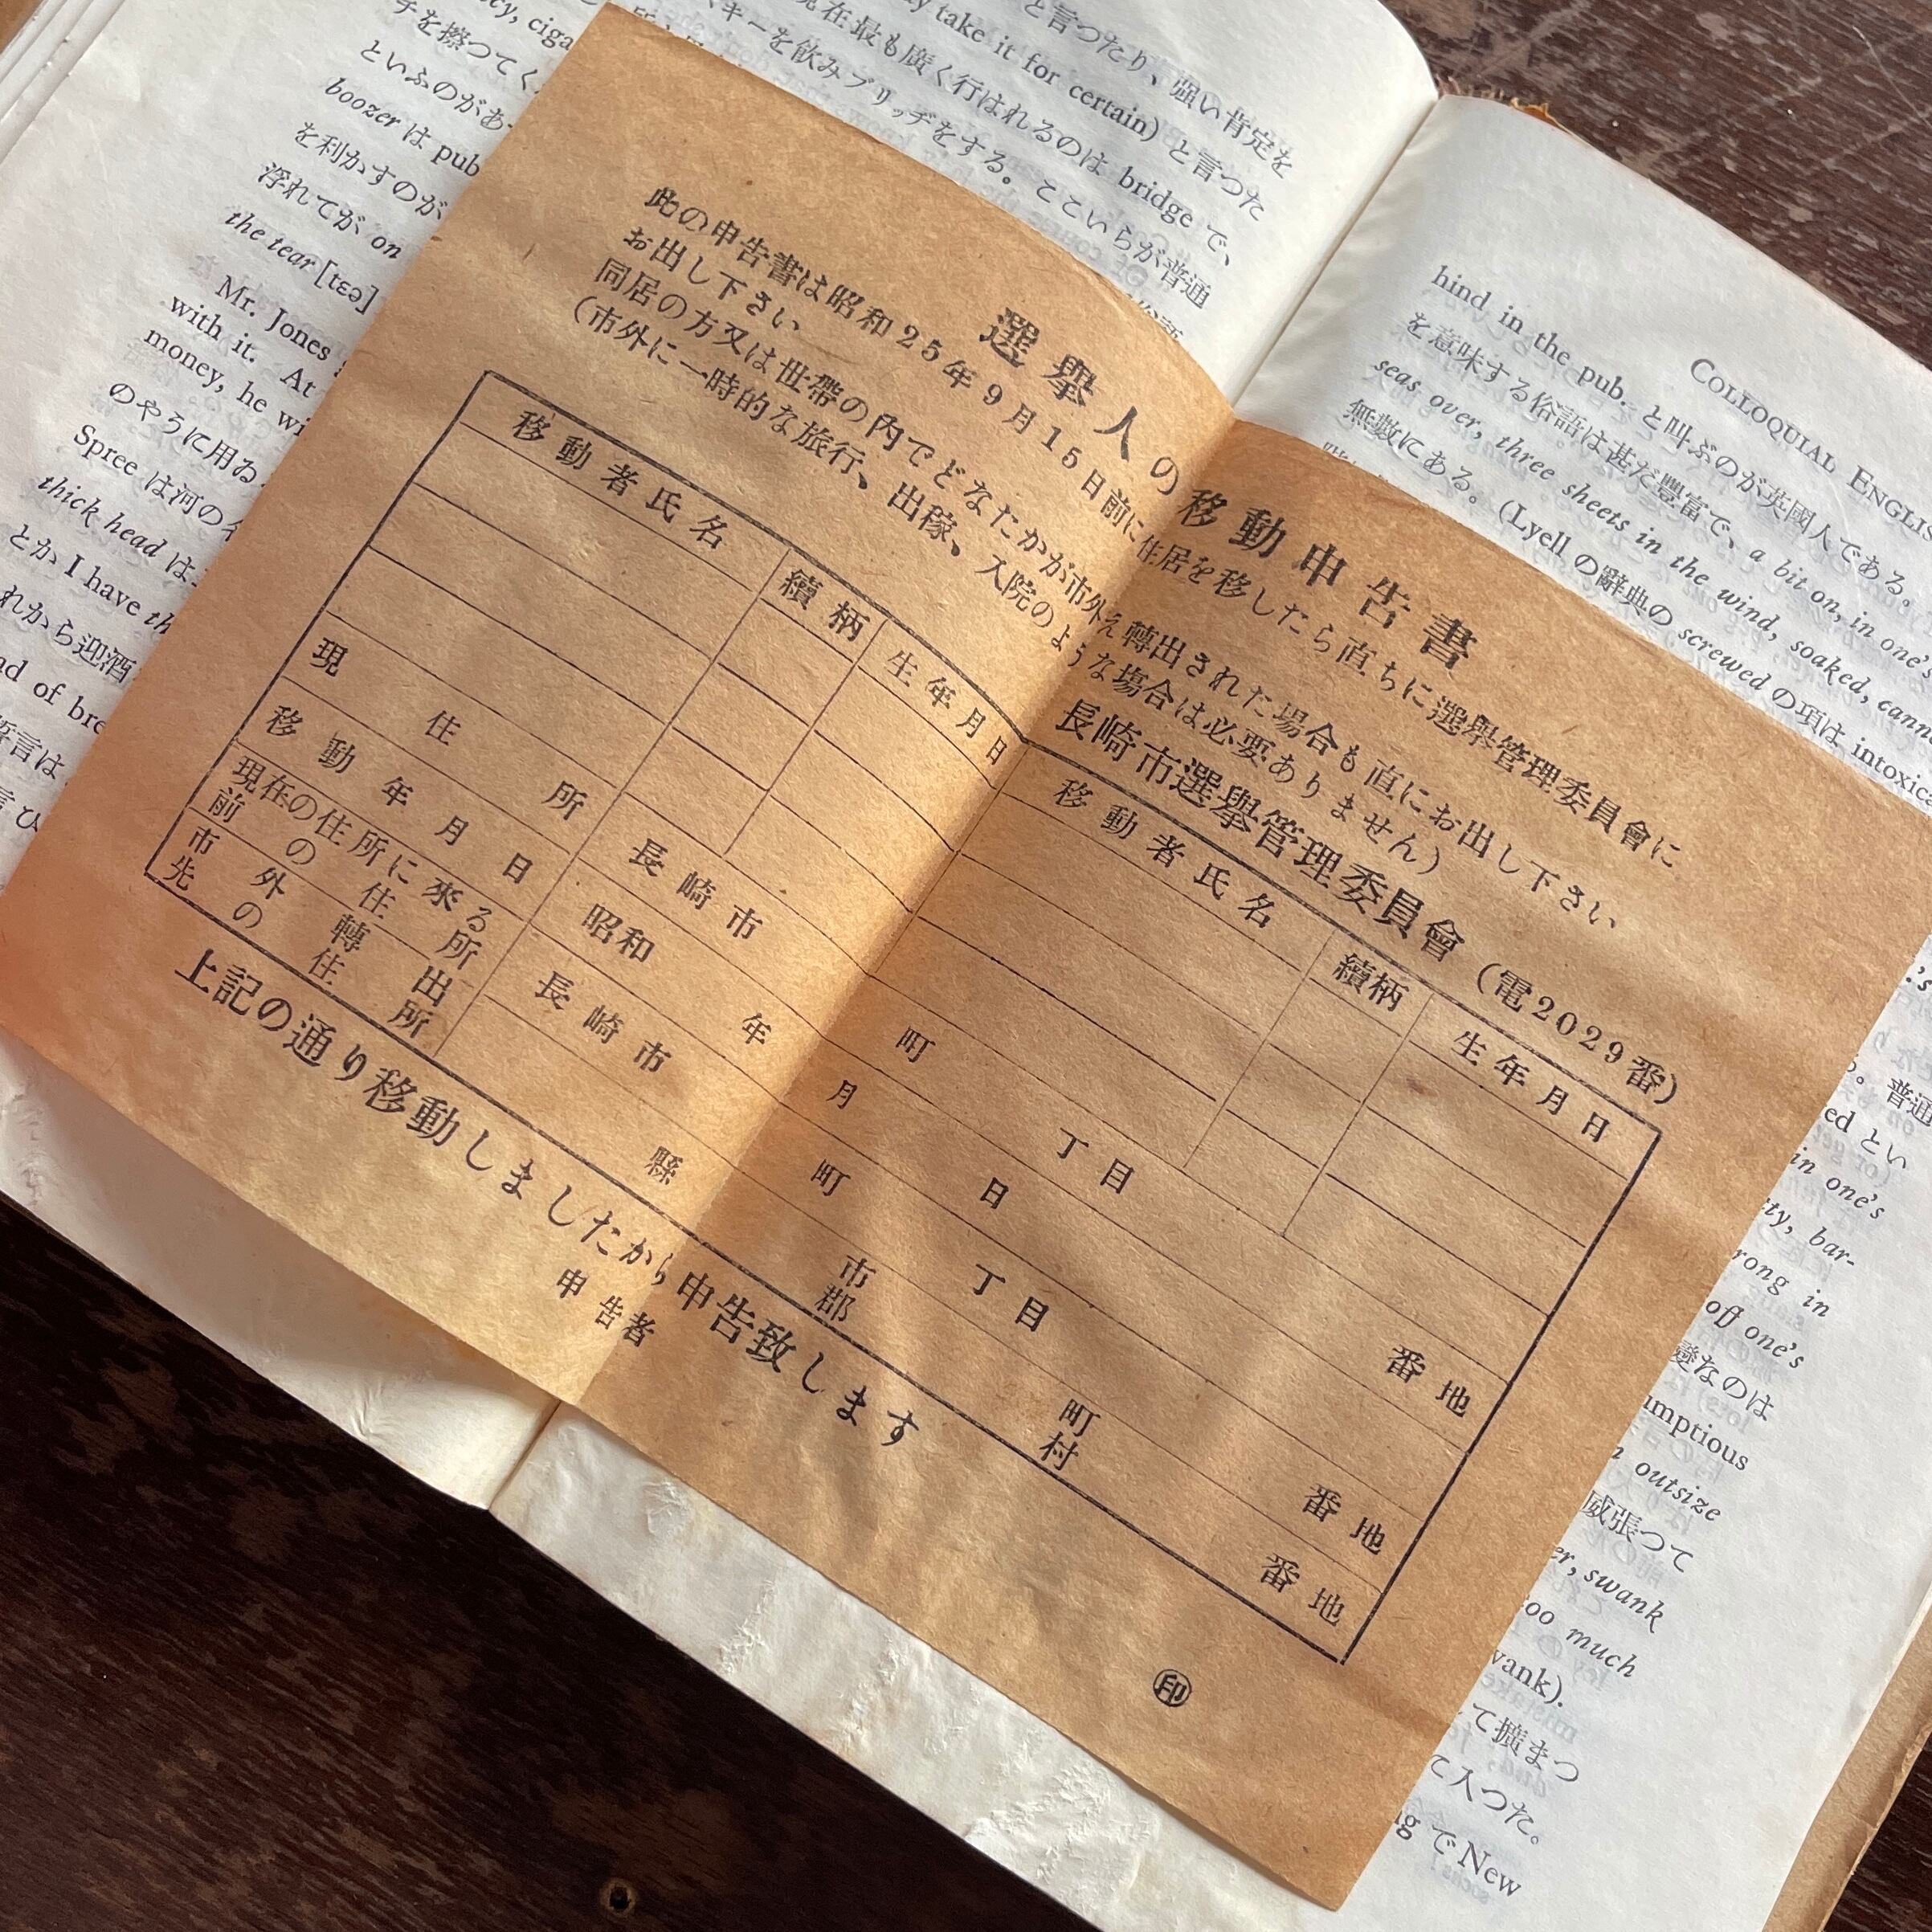 cy, ciga
y take it for certain) と言つた
と言つたり、強い肯定を
チを擦つてく
キーを飲みブリッヂをする。ここいらが普通
現在最も廣く行はれるのは bridge で、
といふのがあ
boozer は pub
を利かすのが
浮れてが on
the tear [tɛə]
Mr. Jones
with it. At
money, he wi
のやうに用ゐ
Spree は河の
thick head は
とか I have th
れから迎酒
nd of bre
誓言は
言ひ
選擧人の移動申告書
此の申告書は昭和25年9月15日前に住居を移したら直ちに選擧管理委員會に
お出し下さい
同居の方又は世帶の內でどなたかが市外え轉出された場合も直にお出し下さい
(市外に一時的な旅行、出稼、入院のような場合は必要ありません)
長崎市選擧管理委員會 (電2029番)
移動者氏名 續柄 生年月日 移動者氏名 續柄 生年月日
現住所 長崎市 町 丁目 番地
移動年月日 昭和 年 月 日
現在の住所に來る
前の住所 長崎市 町 丁目 番地
市外轉出
先の住所 縣 市郡 町村 番地
上記の通り移動しましたから申告致します
申告者 ㊞
COLLOQUIAL ENGLIS
hind in the pub. と叫ぶのが英國人である。
を意味する俗語は甚だ豐富で、a bit on, in one's
seas over, three sheets in the wind, soaked, cann
無數にある。(Lyell の辭典の screwed の項は intoxica
普通
ed とい
in one's
ty, bar-
rong in
off one's
變なのは
mptious
outsize
威張つて
er, swank
oo much
wank).
て擴まつ
て入つた。
ng で New